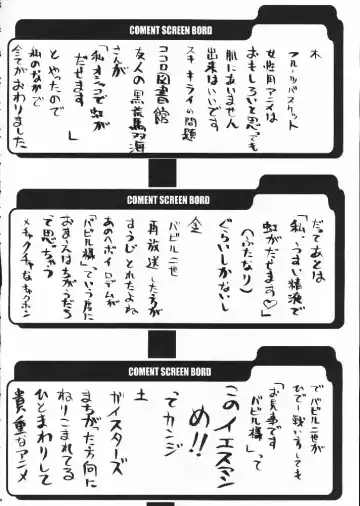 COMENT SCREEN BORD
木
フルーツバスケット
女性用アニメは
おもしろいと思っても
肌にあいません
出来はいいです
スキキライの問題
ココロ図書館
友人の黒荒馬羽海
さんが
「私オシッコで虹が
だせます」
とやったので
私のなかで
全てがおわりました
COMENT SCREEN BORD
だってあとは
「私、うすい精液で
虹がだせます♡」
(ふたなり)
ぐらいしかないし
金
バビル二世
再放送した方が
すうじとれたよね
あのヘボイロデムが
「バビル様」でいう度に
おまえはちがうだろ
って思っちゃう
メチャクチャなキャクホン
COMENT SCREEN BORD
でバビル二世が
ひでー戦いをしても
「お見事です
バビル様」って
このイエスマン
め!!
ってカンジ
土
ガイスターズ
まちがった方向に
ねりこまれてる
ひとまわりして
貴重なアニメ